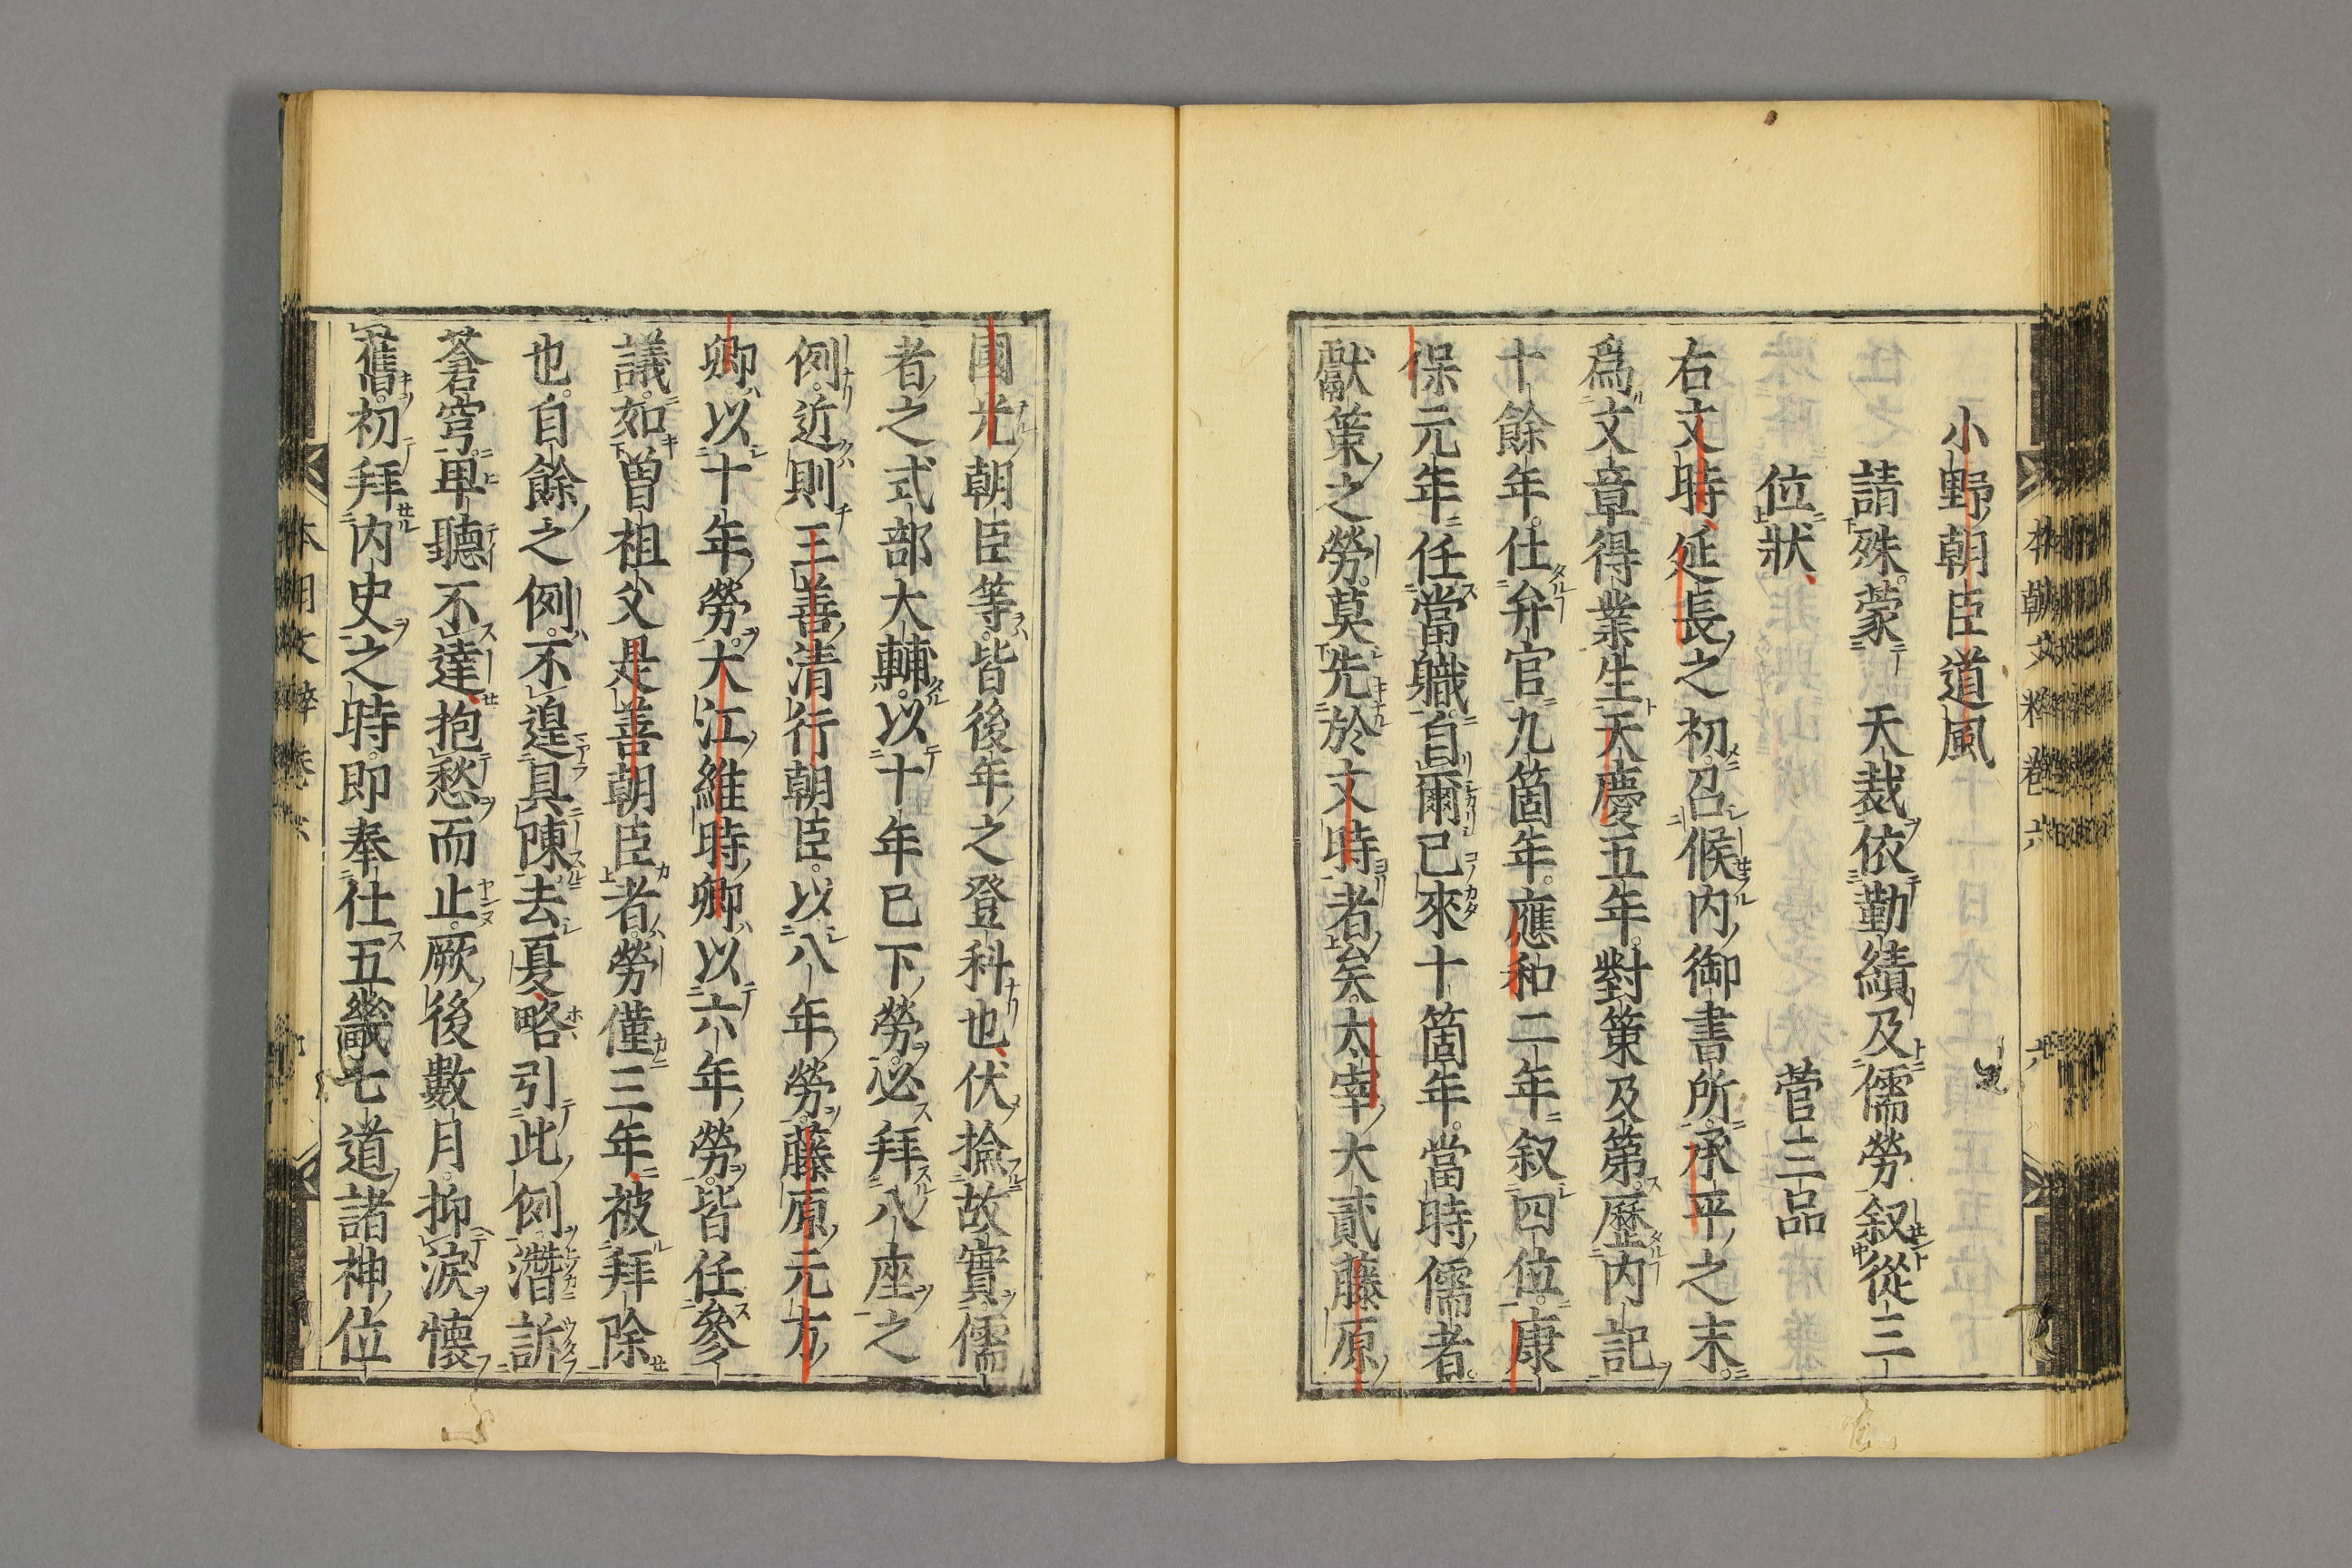 小野朝臣道風
請殊蒙天裁依勤績及儒勞叙從三
位狀
菅三品
右文時延長之初召候内御書所承平之末
爲文章得業生天慶五年對策及第歷内記
十餘年仕弁官九箇年應和二年叙四位康
保元年任當職自爾已來十箇年當時儒者
獻策之勞莫先於文時者矣太宰大貳藤原
國光朝臣等皆後年之登科也伏撿故實儒
者之式部大輔以十年已下勞必拜八座之
例近則三善清行朝臣以八年勞藤原元方
卿以十年勞大江維時卿以六年勞皆任參
議如曾祖父是善朝臣者勞僅三年被拜除
也自餘之例不遑具陳去夏略引此例潛訴
蒼穹卑聽不達抱愁而止厥後數月抑淚懷
舊初拜内史之時即奉仕五畿七道諸神位
本朝文粹卷六
六